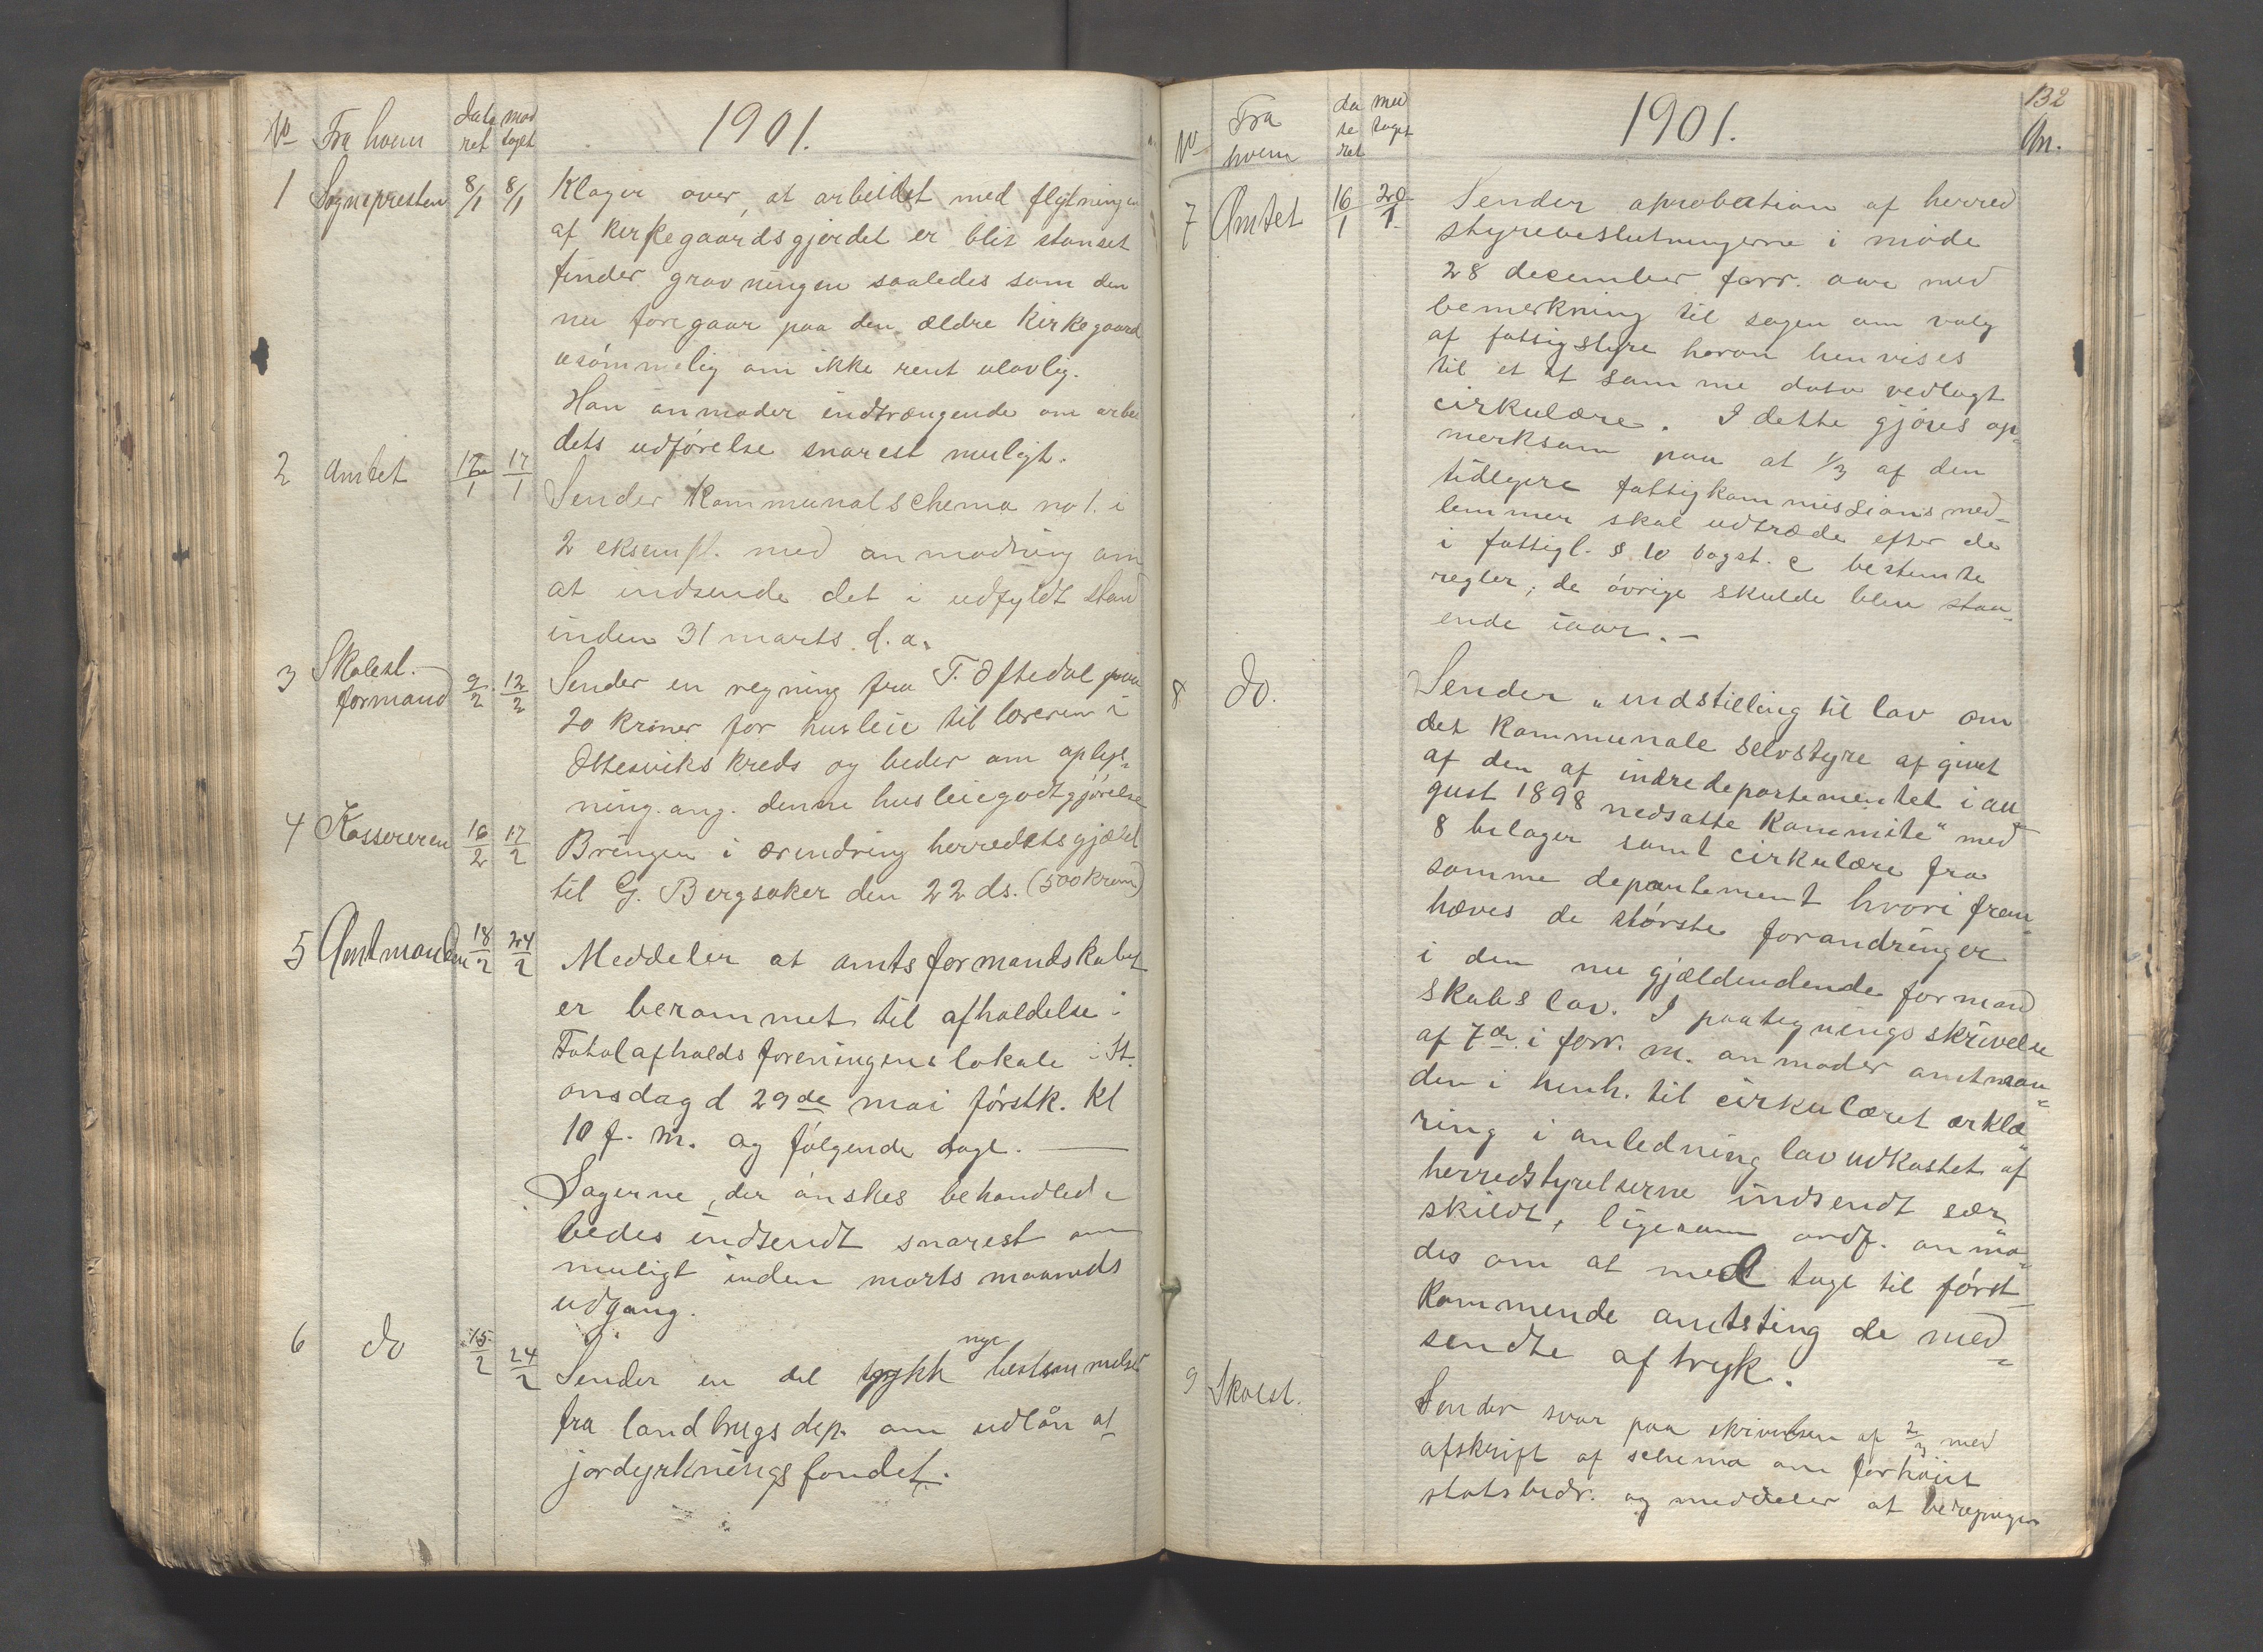 No Fra hvem date mod
ret taget
1901.
1 Sognepresten 8/1 8/1 Klager over, at arbeidet med flytningen
af kirkegaardsgjerdet er blit stanset
finder gravningen saaledes som den
nu foregaar paa den ældre kirkegaard
usømmelig om ikke rent ulovlig.
Han anmoder indtrængende om arbei
dets udførelse snarest muligt.
2 Amtet 1 17/1 Sender kommunalschema no 1. i
2 eksempl. med anmodning om
at indsende det i udfyldt stand
inden 31 marts d. a.
3 Skolest. formand 9/2 12/2 Sender en regning fra T. Oftedal paa
20 kroner for husleie til læreren i
Ottesviks kreds og beder om oplys-
ning ang. denne husleiegodtgjørelse
4 Kassereren 16/2 17/2 Bringer i erindring herredets gjæld
til G. Bergsaker den 22 ds. (500 kroner)
5 Amtmanden 18/2 24/2 Meddeler at amtsformandskabet
er berammet til afholdelse i
Totalafholdsforeningens lokale i St.
onsdag d 29de mai førstk. kl
10 f. m. og følgende dage. —
Sagerne, der ønskes behandlede
bedes indsendt snarest om
muligt inden marts maaneds
udgang.
6 do 15/2 24/2 Sender en del nye bestemmelser
fra landbrugsdep. om udlån af
jordyrkningsfondet.
132
No Fra hvem da te ret mod taget
1901.
An.
7 Amtet 16/1 20/1 Sender aprobation af herred
styrebeslutningerne i møde
28 december forr. aar med
bemerkning til sagen om valg
af fattigstyre hvorom henvises
til et at samme dato vedlagt
cirkulære. I dette gjøres op-
merksom paa at 1/3 af den
tidligere fattigkommissions med-
lemmer skal udtræde efter de
i fattigl. § 10 bogst. c bestemte
regler; de øvrige skulde blive staa-
ende iaar. —
8 do. Sender „indstilling til lov om
det kommunale selvstyre afgivet
af den af indredepartementet i au
gust 1898 nedsatte kommite" med
8 bilager samt cirkulære fra
samme departement hvori frem-
hæves de største forandringer
i den nu gjældendende formand
skabslov. I paategningsskrivelse
af 7de i forr. m. anmoder amtman-
den i henh. til cirkulæret erklæ-
ring i anledning lovudkastet af
herredstyrelserne indsendt sær-
skildt, ligesom ordf. anmo-
des om at med tage til først-
kommende amtsting de med-
sendte aftryk.
9 Skolest. Sender svar paa skrivelsen af 2/3 med
afskrift af schema om forhøiet
statsbidr. og meddeler at beregningen